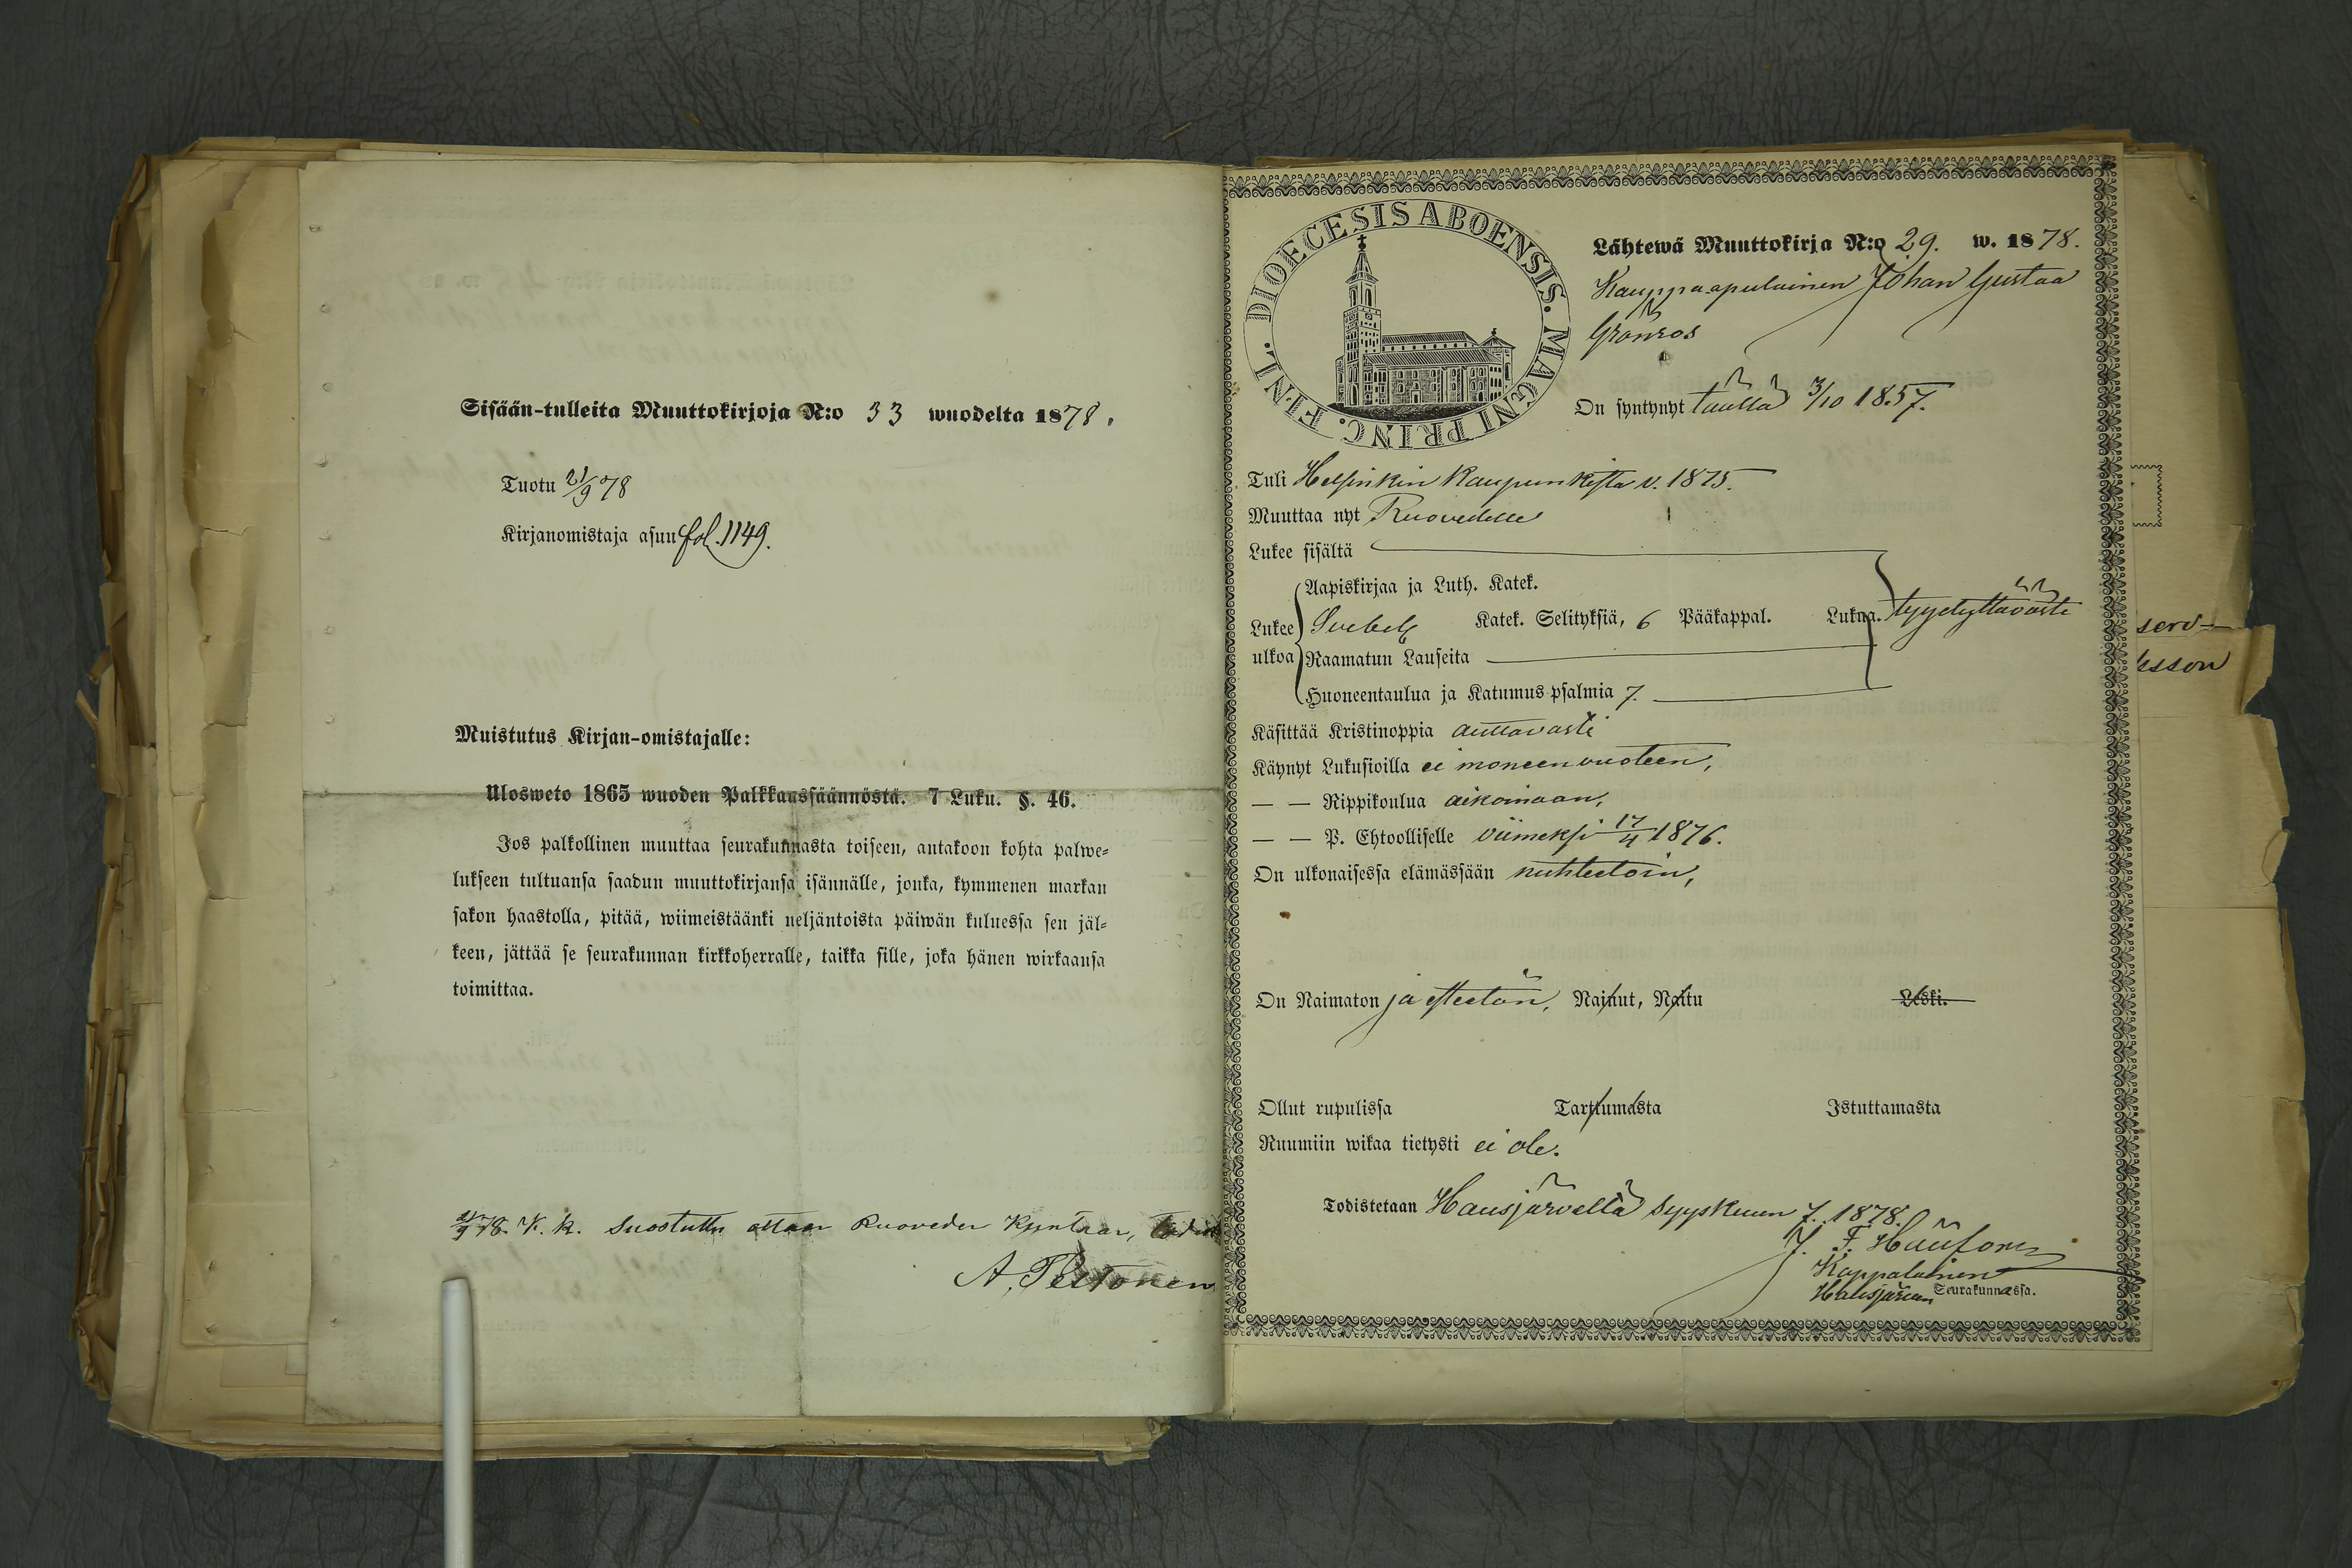 Sisään-tulleita Muuttokirjoja N:o 33 wuodelta 1878.
Tuotu 21/9 78
Kirjanomistaja asuu fol. 1149.
Muistutus Kirjan-omistajalle:
Ulosweto 1865 wuoden Palkkaussäännöstä. 7 Luku. §. 46.
Jos palkollinen muuttaa seurakunnasta toiseen, antakoon kohta palwe-
lukseen tultuansa saadun muuttokirjansa isännälle, jonka, kymmenen markan
sakon haastolla, pitää, wiimeistäänki neljäntoista päiwän kuluessa sen jäl-
keen, jättää se seurakunnan kirkkoherralle, taikka sille, joka hänen wirkaansa
toimittaa.
78. K. k. suostuttu ottaa Ruoveden Kuntaan,
A. Peltonen
DIOECESIS ABOENSIS. MAGNI PRINC. FINL.
Lähtewä Muuttokirja N:o 29. w. 1878.
Kauppa-apulainen Johan Gustaa
Grönros
On syntynyt täällä 3/10 1857.
Tuli Helsinkin kaupunkista v. 1875.
Muuttaa nyt Ruovedelle
Lukee sisältä
Aapiskirjaa ja Luth. Katek.
Lukee Svebel. Katek. Selityksiä, 6 Pääkappal. Lukua. tyydyttävästi
ulkoa Raamatun Lauseita
Huoneentaulua ja Katumus-psalmia 7.
Käsittää Kristinoppia auttavasti
Käynyt Lukusioilla ei moneen vuoteen,
— — Rippikoulua aikoinaan,
— — P. Ehtoolliselle viimeksi 17/4 1876.
On ulkonaisessa elämässään nuhteetoin,
On Naimaton ja esteetön, Nainut, Naitu Leski.
Ollut rupulissa Tarttumasta Istuttamasta
Ruumiin wikaa tietysti ei ole.
Todistetaan Hausjärvellä Syyskuun 7. 1878.
J. F. Häufors
Kappalainen
Hausjärven Seurakunnassa.
serv-
sson